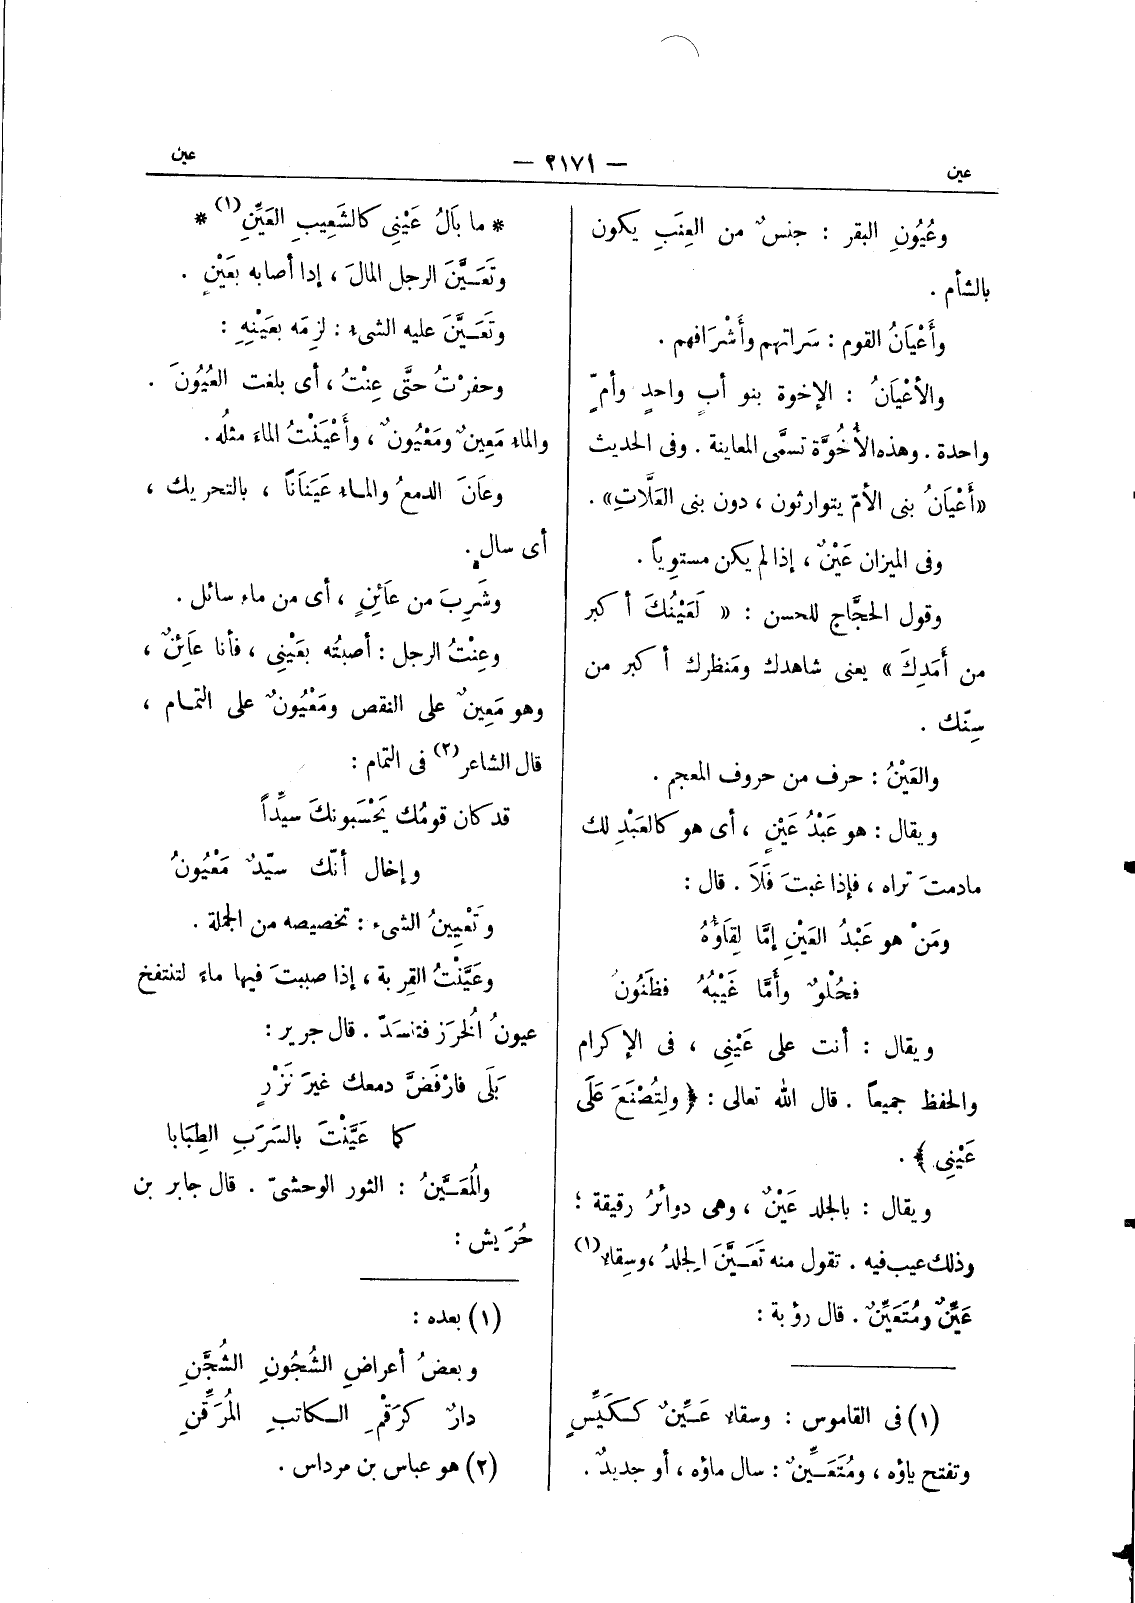 عين
— ٢١٧١ —
عين
وعُيُونِ البقر : جنسٌ من العِنَبِ يكون
بالشأم .
وأَعْيَانُ القوم : سَراتهم وأَشْرَافهم .
والأعْيَانُ : الإخوة بنو أبٍ واحدٍ وأمّ
واحدة . وهذه الأُخُوَّة تسمَّى المعاينة . وفى الحديث
«أَعْيَانُ بنى الأمّ يتوارثون ، دون بنى العَلَّاتِ» .
وفى الميزان عَيْنٌ ، إذا لم يكن مستوِياً .
وقول الحجَّاج للحسن : « لَعَيْنُكَ أكبر
من أَمَدِكَ » يعنى شاهدك ومَنظرك أكبر من
سِنّك .
والعَيْنُ : حرف من حروف المعجم .
ويقال : هو عَبْدُ عَيْنٍ ، أى هو كالعَبْدِ لك
مادمتَ تراه ، فإذا غبتَ فَلَا . قال :
ومَنْ هو عَبْدُ العَيْنِ إمَّا لِقَاؤُهُ
فَحُلْوٌ وأَمَّا غَيْبُهُ فظَنُونُ
ويقال : أنت على عَيْنِى ، فى الإكرام
والحفظ جميعاً . قال الله تعالى : ﴿ ولِتُصْنَعَ عَلَى
عَيْنِى ﴾ .
ويقال : بالجلد عَيْنٌ ، وهى دوائرُ رقيقة ؛
وذلك عيب فيه . تقول منه تَعَيَّنَ الجِلدُ ، وسِقاء(١)
عَيِّنٌ ومُتَعَيِّنٌ . قال رؤبة :
(١) فى القاموس : وسقاء عَيِّنٌ كَكَيِّسٍ
وتفتح ياؤه ، ومُتَعَيِّنٌ : سال ماؤه ، أو جديدٌ .
* ما بَالُ عَيْنِى كالشَعِيبِ العَيِّنِ(١) *
وتَعَيَّنَ الرجل المالَ ، إذا أصابه بعَيْنٍ .
وتَعَيَّنَ عليه الشىء : لزِمَه بعَيْنِهِ :
وحفرْتُ حتَّى عِنْتُ ، أى بلغت العُيُونَ .
والماء مَعِينٌ ومَعْيُونٌ ، وأَعْيَنْتُ الماءَ مثلُه .
وعَانَ الدمعُ والماء عَيَنَاناً ، بالتحريك ،
أى سال .
وشَرِبَ من عَائِنٍ ، أى من ماء سائل .
وعِنْتُ الرجل : أصبتُه بعَيْنِى ، فأنا عَائِنٌ ،
وهو مَعِينٌ على النقص ومَعْيُونٌ على التمام ،
قال الشاعر(٢) فى التمام :
قد كان قومُك يَحْسَبونكَ سيِّداً
وإخال أنّك سيّدٌ مَعْيُونُ
وتَعْيِينُ الشىء : تخصيصه من الجملة .
وعَيَّنْتُ القِربة ، إذا صببتَ فيها ماءً لتنتفخ
عيونُ الخُرَز فتنسَدّ . قال جرير :
بَلَى فارْفَضَّ دمعك غيرَ نَزْرٍ
كما عَيَّنْتَ بالسَرَبِ الطِبَابا
والمُعَيَّنُ : الثور الوحشىّ . قال جابر بن
حُرَيش :
(١) بعده :
وبعضُ أعراضِ الشُجُونِ الشُجَّنِ
دارٌ كرَقْمِ الكاتبِ المُرَقِّنِ
(٢) هو عباس بن مرداس .